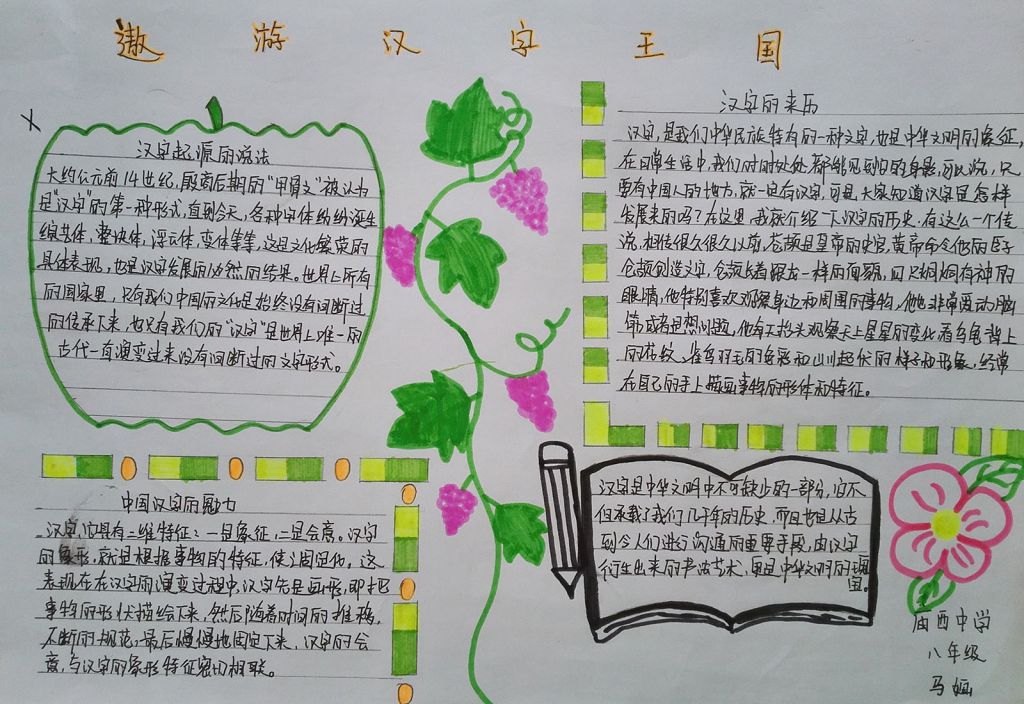 遨游汉字王国
汉字起源的说法
大约公元前14世纪，殷商后期的“甲骨文”被认为
是“汉字”的第一种形式，直到今天，各种字体纷纷诞生
综艺体，整块体，浮云体，变体等等，这是文化繁荣的
具体表现，也是汉字发展的必然的结果。世界上所有
的国家里，只有我们中国的文化是始终没有间断过
的传承下来，也只有我们的“汉字”是世界上唯一的
古代一直演变过来没有间断过的文字形式。
汉字的来历
汉字，是我们中华民族特有的一种文字，也是中华文明的象征，
在日常生活中，我们时时处处都能见到它的身影，可以说，只
要有中国人的地方，就一定有汉字，可是，大家知道汉字是怎样
发展来的吗？在这里，我就介绍一下汉字的历史，有这么一个传
说，相传很久很久以前，仓颉是皇帝的史官，黄帝命令他的臣子
仓颉创造文字，仓颉长着跟龙一样的面貌，四只炯炯有神的
眼睛，他特别喜欢观察身边和周围的事物，他也非常爱动脑
筋或者思想问题，他有工抬头观察天上星星的变化看乌龟背上
的花纹、雀鸟羽毛的色彩和山川起伏的样子和形象，经常
在自己的手上描画事物的形体和特征。
中国汉字的魅力
汉字它具有二维特征：一是象征，二是会意。汉字
的象形，就是根据事物的特征，使之固定化，这
表现在在汉字的演变过程中，汉字先是画形，即把
事物的形状描绘下来，然后随着时间的推移，
不断的规范，最后慢慢地固定下来，汉字的会
意，与汉字的象形特征密切相联。
汉字是中华文明中不可缺少的一部分，它不
但承载了我们几千年的历史，而且也是从古
到今人们进行沟通的重要手段，由汉字
衍生出来的书法艺术，更是中华文明的瑰
宝。
西中学
八年级
马